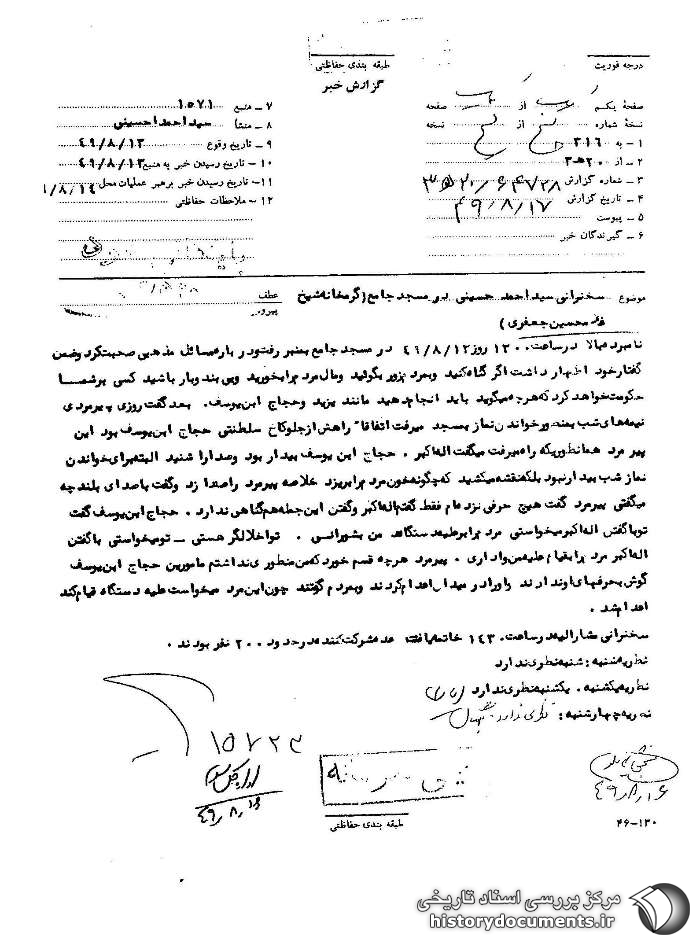 درجه فوریت
طبقه بندی حفاظتی
گزارش خبر
صفحهٔ یکم از صفحه
نسخهٔ شماره از نسخه
۱ – به ۳۱۶
۲ – از ۲۰ هـ ۳
۳ – شماره گزارش
۴ – تاریخ گزارش ۴۹/۸/۱۷
۵ – پیوست
۶ – گیرندگان خبر
۷ – منبع ۱۵۷۱
۸ – منشأ سید احمد حسینی
۹ – تاریخ وقوع ۴۹/۸/۱۳
۱۰ – تاریخ رسیدن خبر به منبع ۴۹/۸/۱۳
۱۱ – تاریخ رسیدن خبر برهبر عملیات محل ۸/۱۴
۱۲ – ملاحظات حفاظتی
موضوع سخنرانی سید احمد حسینی در مسجد جامع (گرمخانه شیخ
غلامحسین جعفری)
عطف
پیرو
نامبرده بالا در ساعت ۱۳۰۰ روز ۴۹/۸/۱۲ در مسجد جامع بمنبر رفت و در باره مسائل مذهبی صحبت کرد و ضمن
گفتار خود اظهار داشت اگر گناه کنید و بمردم زور بگوئید و مال مردم را بخورید و بی بند و بار باشید کسی بر شما
حکومت خواهد کرد که هر چه میگوید باید انجام دهید مانند یزید و حجاج ابن یوسف. بعد گفت روزی پیرمردی
نیمه های شب بمنظور خواندن نماز بمسجد میرفت اتفاقاً راهش از جلو کاخ سلطنتی حجاج ابن یوسف بود این
پیر مرد همانطوریکه راه میرفت میگفت اله اکبر. حجاج ابن یوسف بیدار بود و صدا را شنید البته برای خواندن
نماز شب بیدار نبود بلکه نقشه میکشید که چگونه خون مردم را بریزد خلاصه پیرمرد را صدا زد و گفت با صدای بلند چه
میگفتی پیرمرد گفت هیچ حرفی نزده ام فقط گفتم اله اکبر و گفتن این جمله هم گناهی ندارد. حجاج ابن یوسف گفت
تو با گفتن اله اکبر میخواستی مردم را بر علیه دستگاه من بشورانی. تو اخلالگر هستی – تو میخواستی با گفتن
اله اکبر مردم را بقیام علیه من واداری. پیرمرد هر چه قسم خورد که من منظوری نداشتم مامورین حجاج ابن یوسف
گوش بحرفهای او ندادند و او را در میدان اعدام کردند و بمردم گفتند چون این مرد میخواست علیه دستگاه قیام کند
اعدام شد.
سخنرانی مشارالیه در ساعت ۱۴۳۰ خاتمه یافت عده شرکت کننده در حدود ۲۰۰ نفر بودند.
نظریه شنبه : شنبه نظری ندارد
نظریه یکشنبه. یکشنبه نظری ندارد
نظریه چهارشنبه : نظری ندارد
۱۵۷۲۳
۴۹/۸/۱۶
طبقه بندی حفاظتی
۴۶-۱۳۰
مرکز بررسی اسناد تاریخی
historydocuments.ir